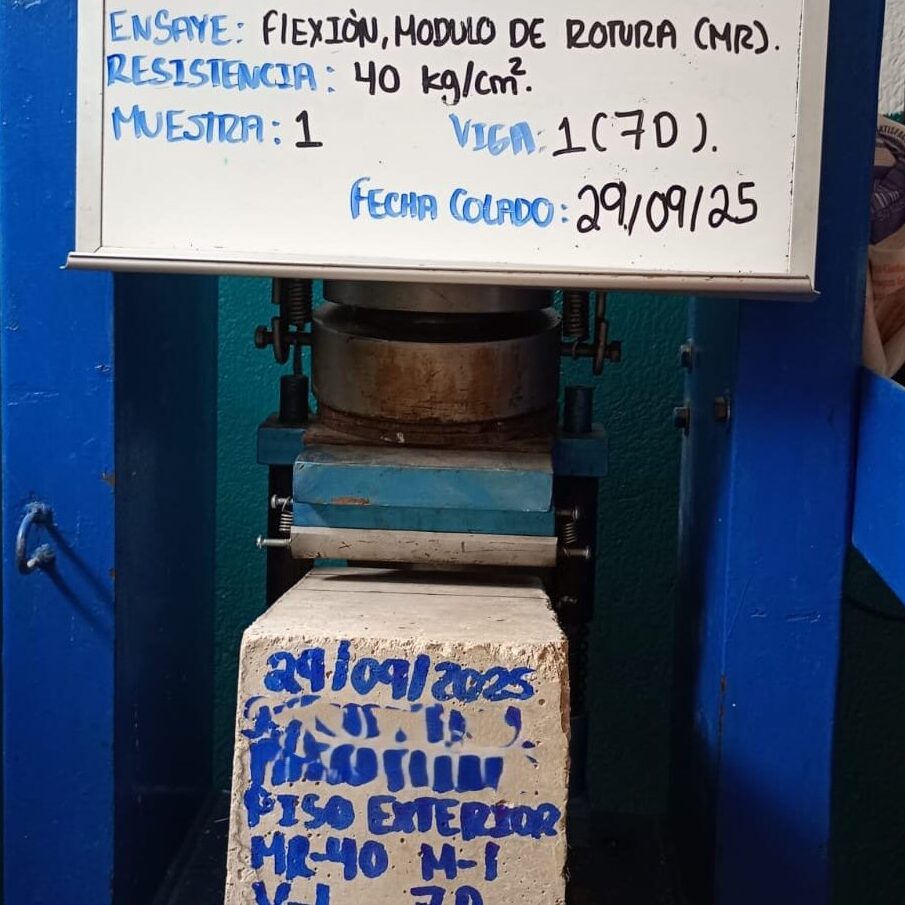 ENSAYE: FlEXIÒN, MODULO DE ROTURA (MR).
RESISTENCIA: 40 kg/cm².
MUESTRA: 1 VIGA: 1 (7D).
FECHA COLADO: 29/09/25
29/09/2025
PISO EXTERIOR
MR-40 M-1
V-1 7D